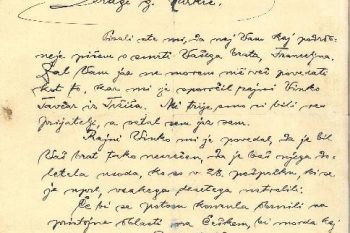 Dragi g.
Pisali ste mi, da naj Vam kaj podrob-
neje pišem o smrti Vašega brata,
Žal Vam jaz ne morem nič več povedati
kot to, kar mi je sporočil rajni Vinko
Tavčar iz Tržiča. Mi trije smo si bili vsi
prijatelji, a ostal sem jaz sam.
Rajni Vinko mi je povedal, da je bil
Vaš brat tako nesrečen, da je baš njega do-
letela usoda, ko so v 28. polku, ki se
je uprl, vsakega desetega ustrelili.
Če bi se potom konzula obrnili na
pristojne oblasti na Češkem, bi morda kaj